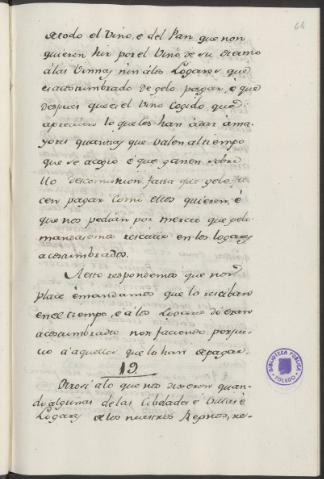 64
de todo el Vino, e del Pan que non
quieren hir por el Vino de su Diezmo
á las Vinnas, nin á los Logares que
es acostumbrado de gelo pagar, é que
despues que es el Vino Cogido, que
aprecian lo que les han á dar á ma-
yores quantias que valen al tiempo
que se acogio é que ganen sobre
llo descomunion fasta que gelo fa-
cen pagar como ellos quieren, é
que nos pedian por merced que gelo
mandasemos rescebir en los logares
acostumbrados.
A esto respondemos que nos
place é mandamos que lo reciban
en el tiempo, e a los Logares do es
acostumbrado non faciendo perjui-
cio á aquellos que lo han de pagar.
19.
Otrosi á lo que nos dixeron quan-
do algunas de las Cibdades é Villas é
Logares de los nuestros Regnos, re-
BIBLIOTECA PUBLICA
TOLEDO